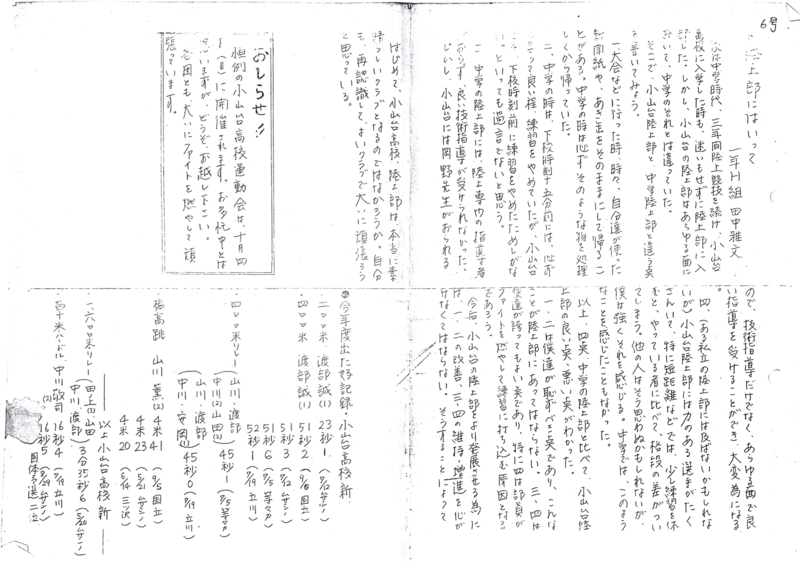 6号
陸上部にはいって
一年H組 田中雅文
僕は中学時代、三年間陸上競技を続け、小山台
高校に入学した時も、迷いもせずに陸上部に入
部した。しかし、小山台の陸上部はあらゆる面に
おいて、中学のそれとは違っていた。
そこで、小山台陸上部と、中学陸上部と違う点
を書いてみよう。
一、大会などに行った時、時々、自分達が使った
新聞紙や、あき缶をそのままにして帰るこ
とがある。中学の時は必ずそのような物を処理
してから帰っていた。
二、中学の時は、下校時刻十五分前には、必ず
練習をやめていたが、小山台
下校時刻前に練習をやめたためしがな
い。といっても過言でないと思う。
三、中学の陸上部には、陸上専門の指導者
がおらず、良い技術指導が受けられなかった。
しかし、小山台には岡野先生がおられる
ので、技術指導だけでなく、あらゆる面で良
い指導を受けることができ、大変為になる
。
四、ある私立の陸上部には及ばないかもしれな
いが、小山台陸上部には力のある選手がたく
さんいて、特に短距離などでは、少し練習を休
むと、やっている者に比べて、格段の差がつい
てしまう。他の人はそう思わぬかもしれないが、
僕は強くそれを感じる。中学では、このよう
なことを感じたこともなかった。
以上、四点、中学の陸上部と比べて、小山台陸
上部の良い点、悪い点がわかった。
一、二は僕達が恥ずべき点であり、こんな
ことが陸上部にあってはならない。三、四は
僕達が誇ってもよい点であり、特に四は部員が
ファイトを燃やして練習に打ち込む原因となる
であろう。
今后、小山台の陸上部をより発展させる為に
は、一、二の改善、三、四の維持、増進を心が
けなくてはならない。そうすることによって
はじめて、小山台高校、陸上部は本当に素
晴らしいクラブとなるのではなかろうか。自分
も、再認識して、よいクラブで大いに頑張ろう
と思っている。
おしらせ!!
恒例の小山台高校運動会は十月四
日に開催されます。お多忙中とは
思いますが、どうぞ、お越し下さい。
各団とも、大いにファイトを燃やして頑
張っています。
今年度出た好記録 小山台高校新
二〇〇米 渡部誠(1) 23秒1
四〇〇米 渡部誠(1) 51秒2
51秒3
51秒6
52秒1
四〇〇米リレー 山川 渡部 中川(2)山田(2) 45秒1
山川 渡部 中川 安岡 45秒0
棒高跳 山川 薫(2) 4米41
4米23
4米20
以上小山台高校新
一六〇〇米リレー 田上 山田 中川 渡部 3分35秒6
百十米ハードル 中川敬司(2) 16秒4
16秒5